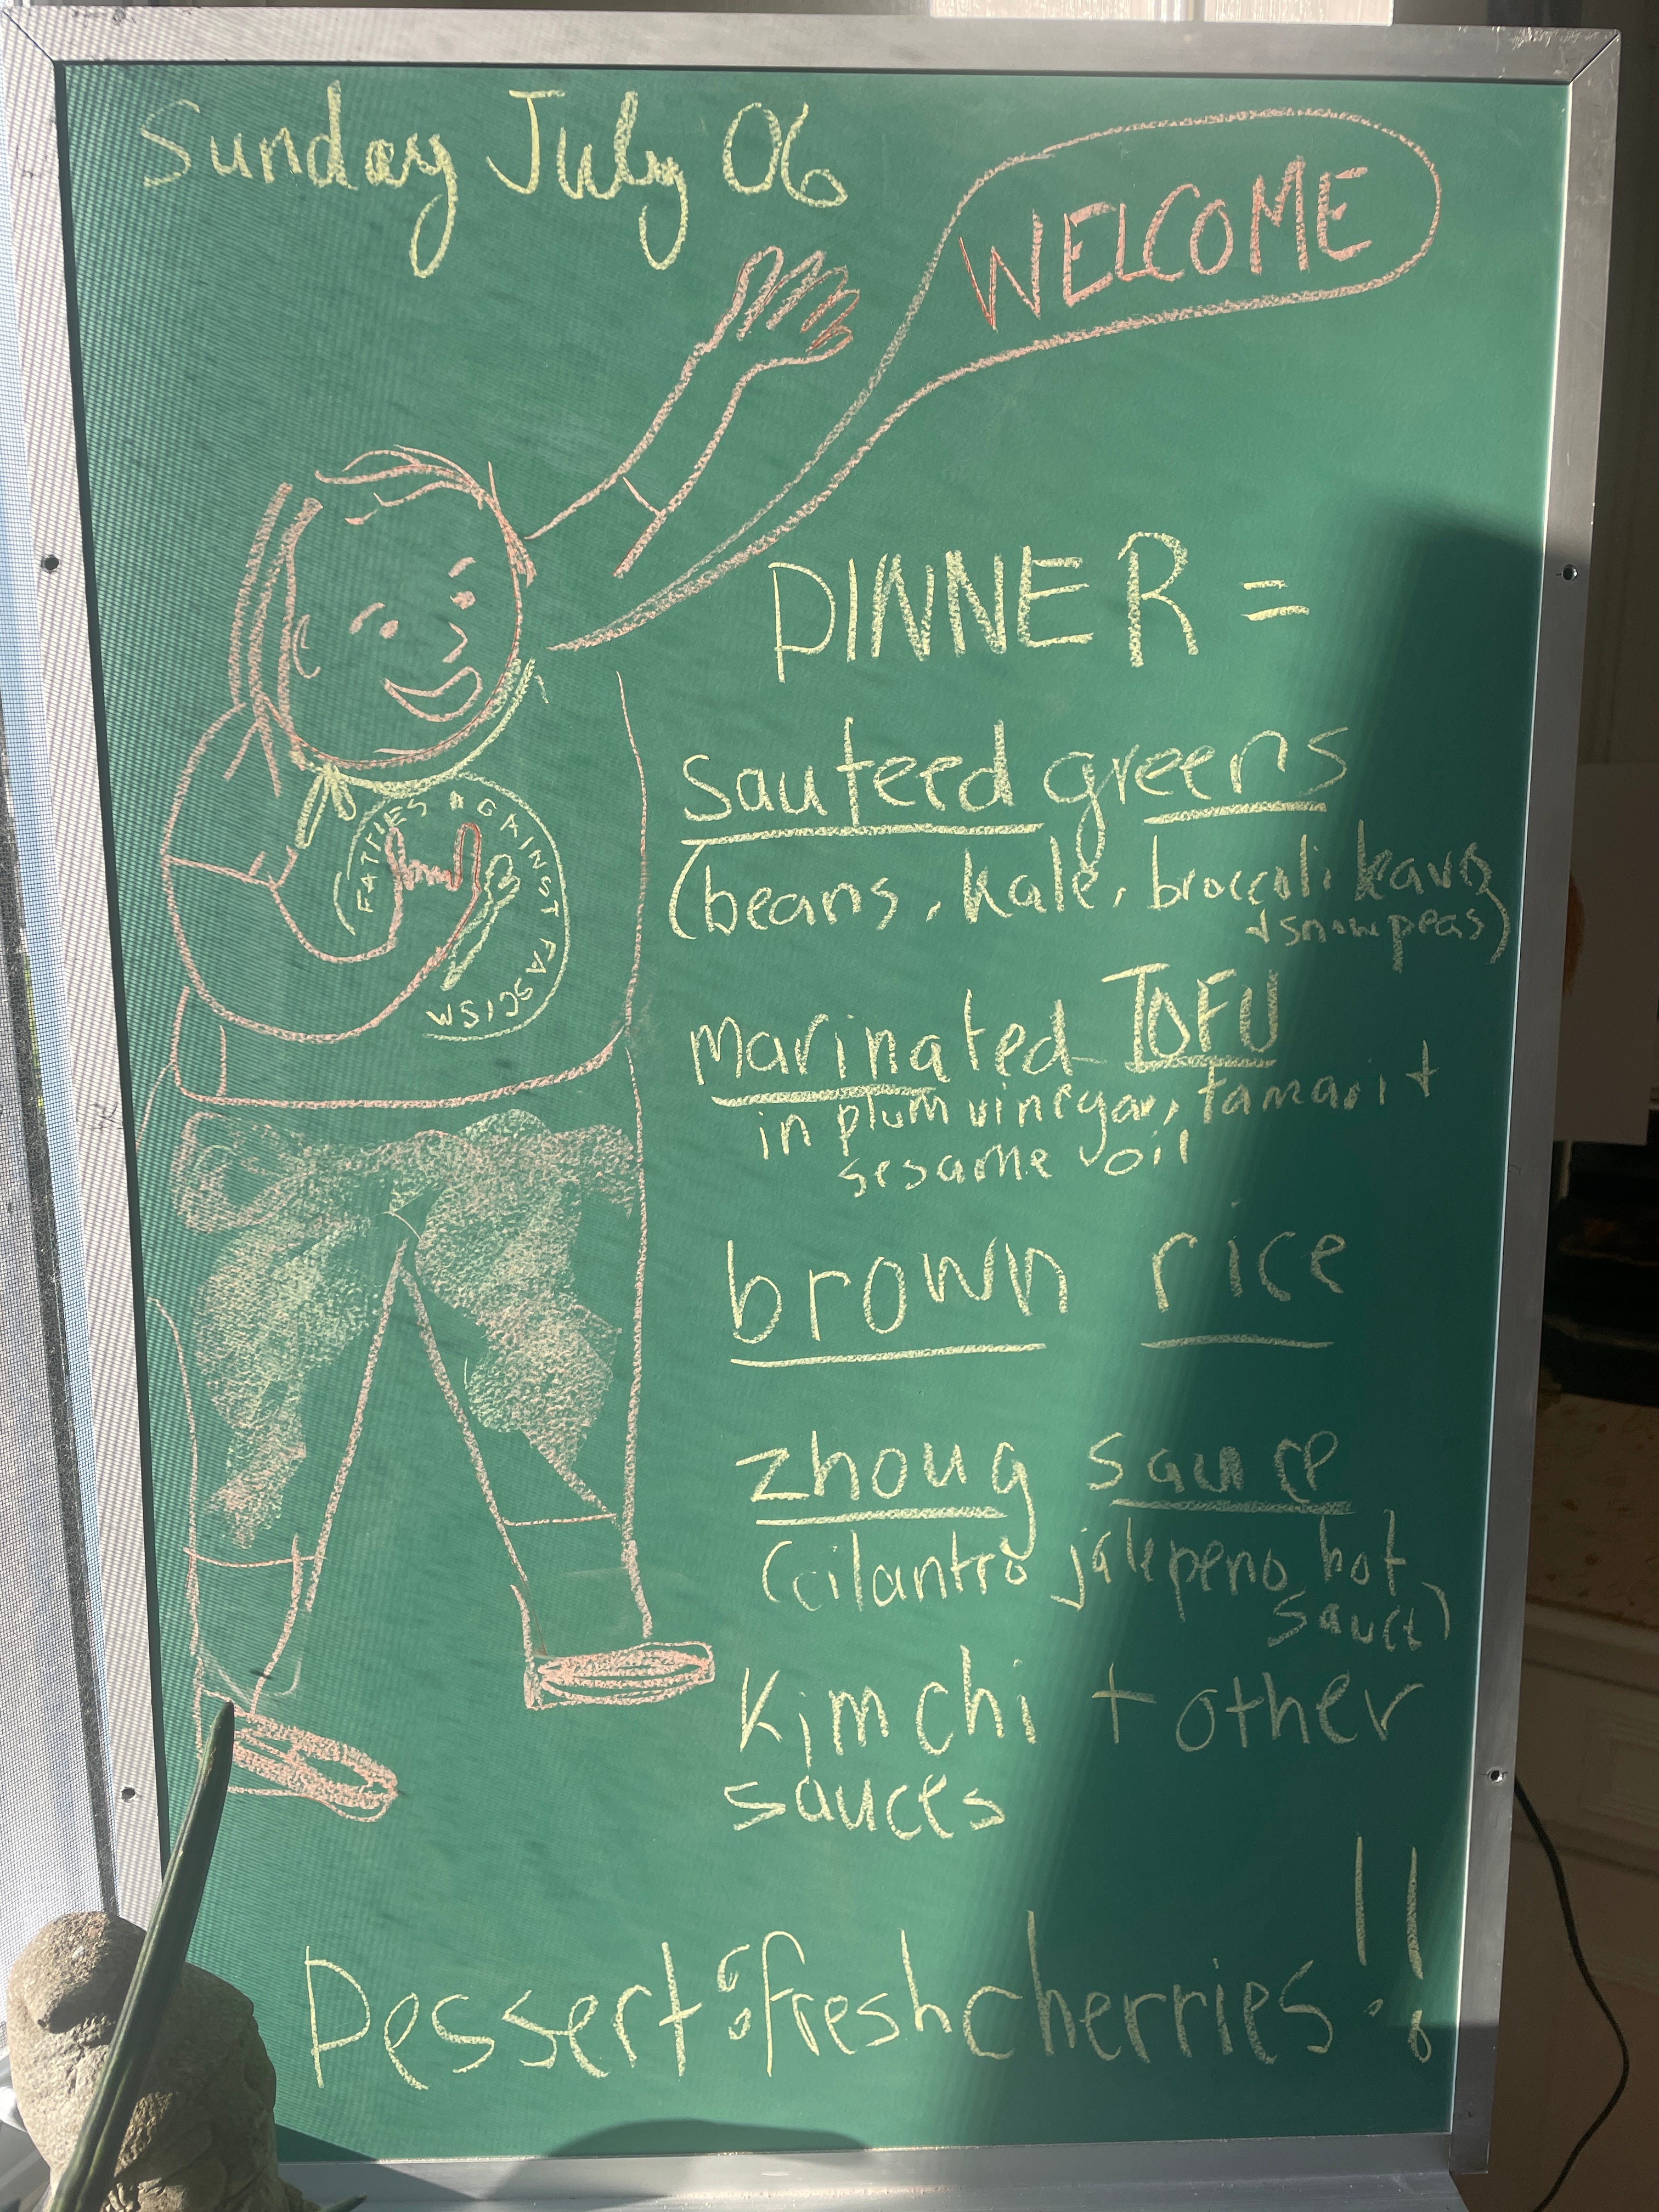 Sunday July 06
WELCOME
DINNER =
sauteed greens
(beans, kale, broccoli leaves
+ snow peas)
FATTIES AGAINST FASCISM
marinated TOFU
in plum vinegar, tamari +
sesame oil
brown rice
zhoug sauce
(cilantro jalepeno hot
sauce)
Kimchi + other
sauces
Dessert: fresh cherries!!